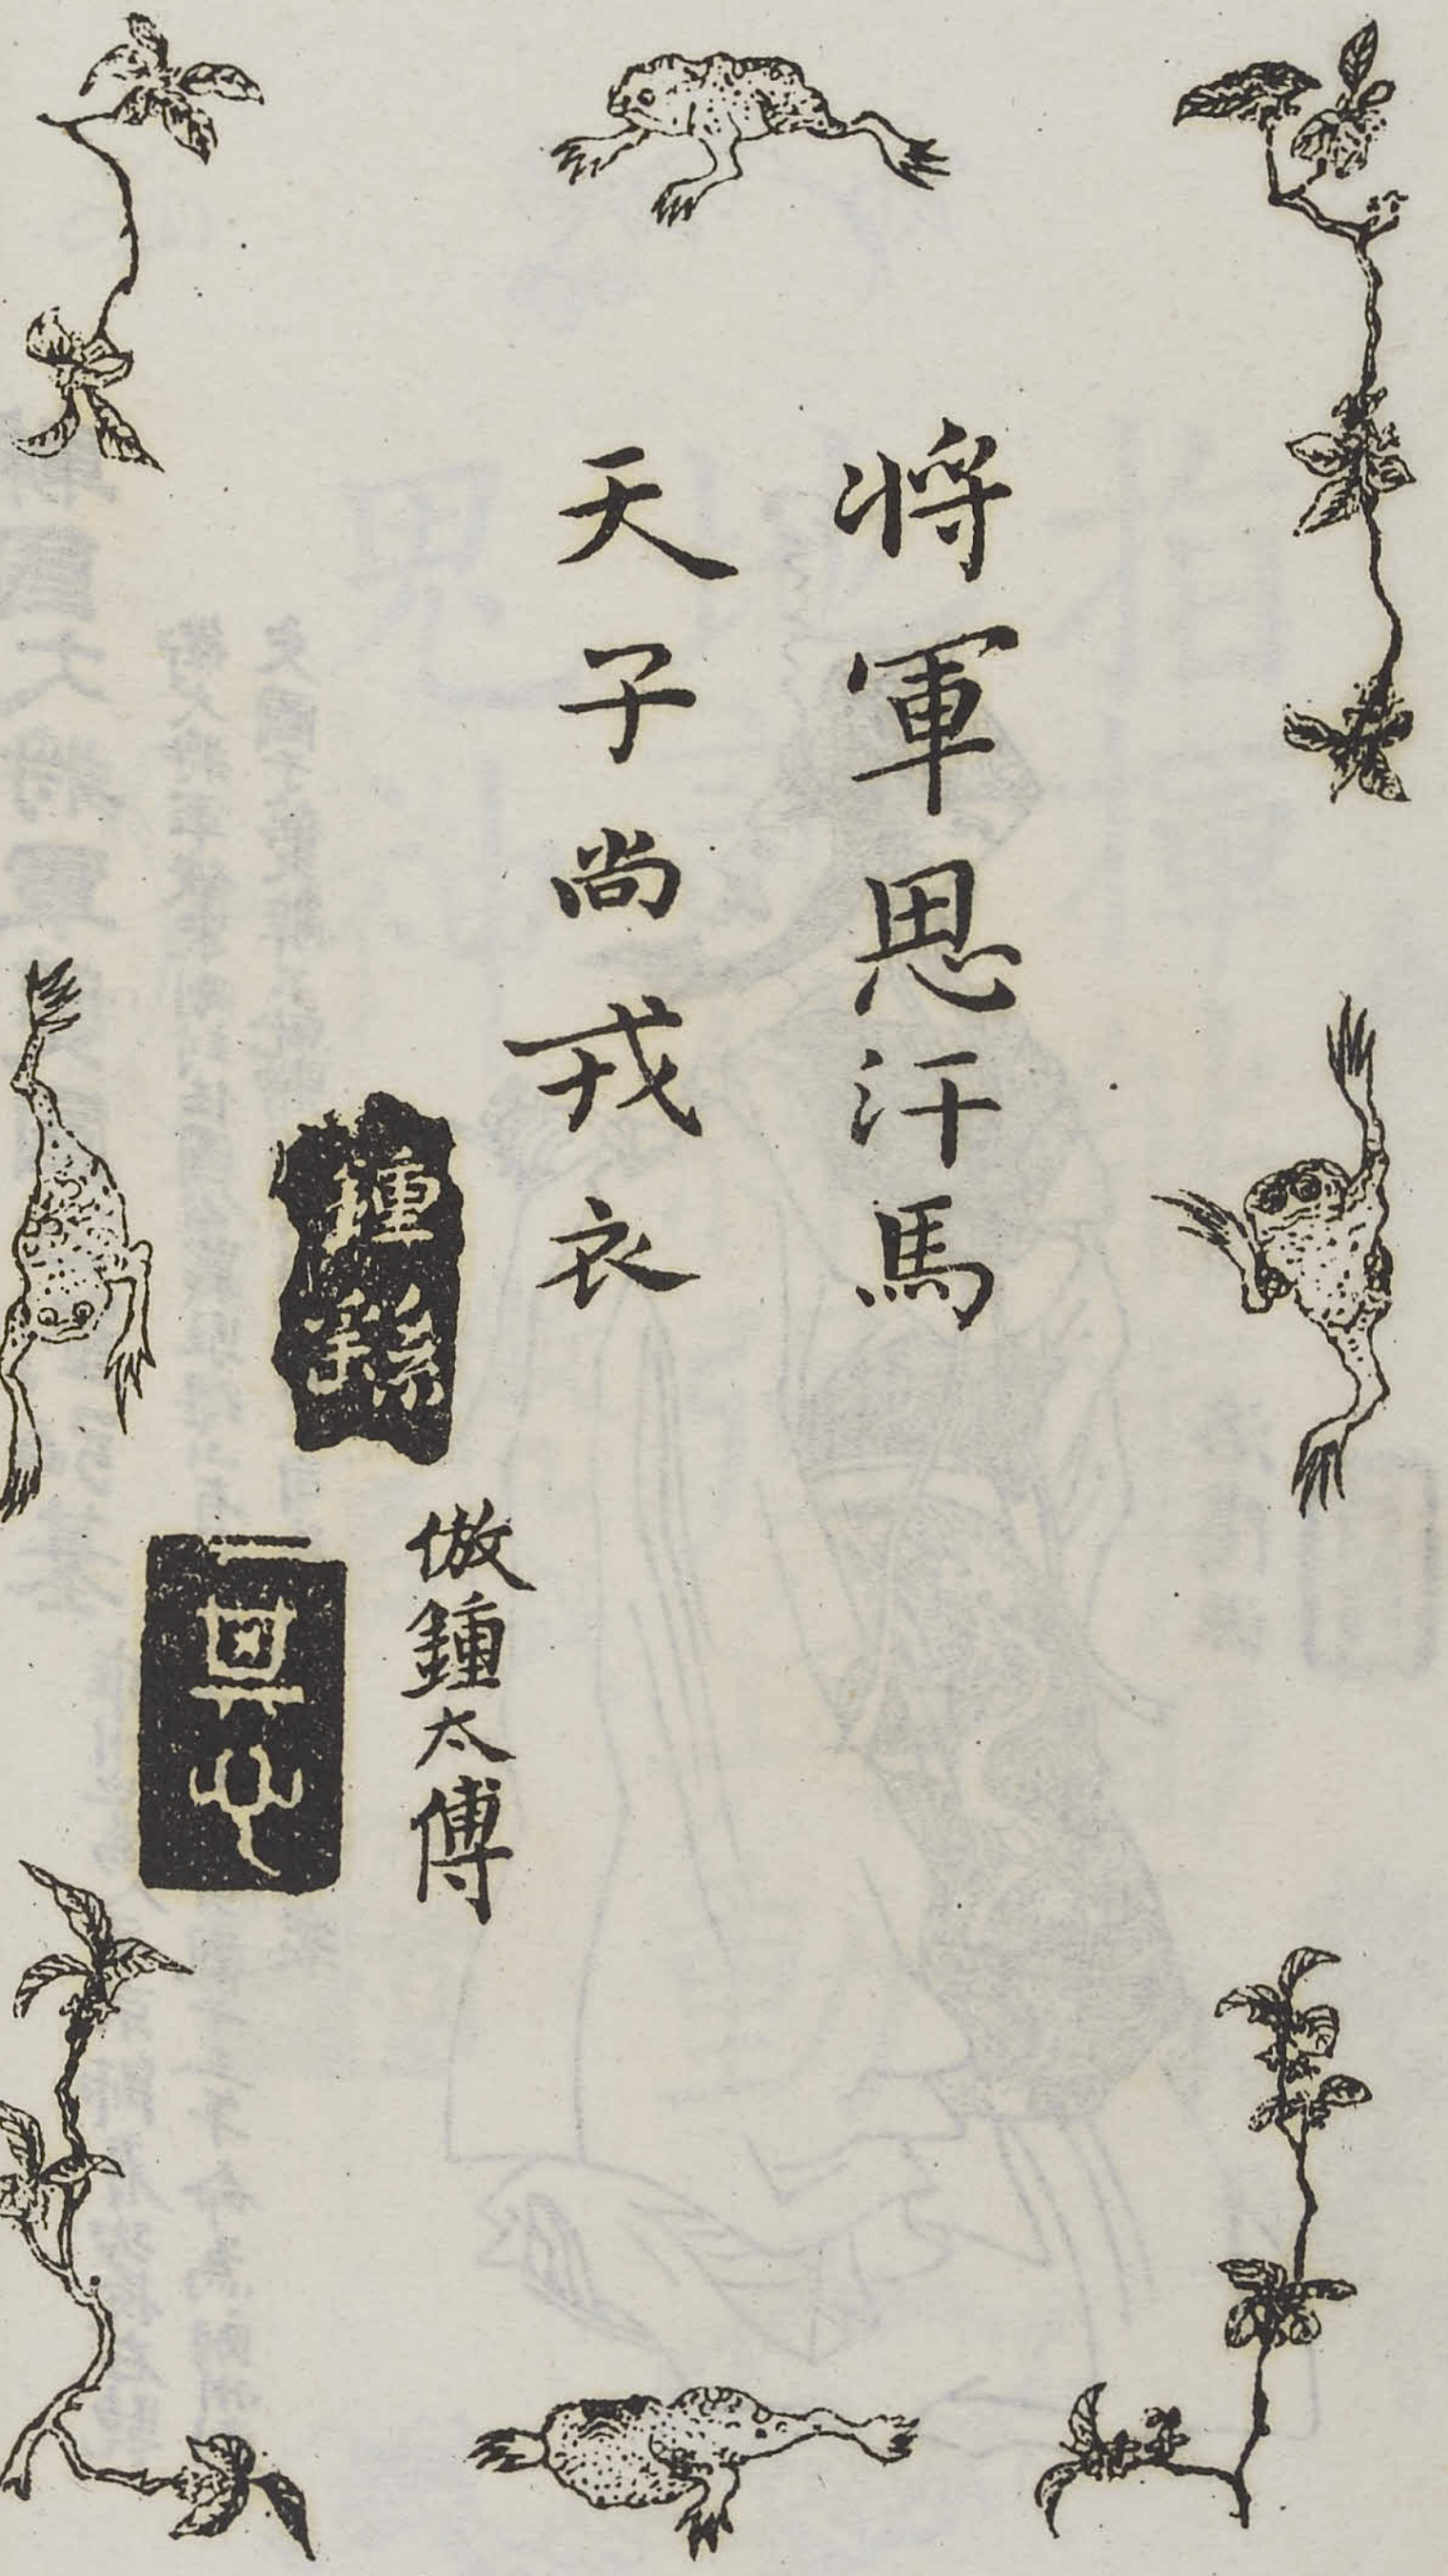 將軍思汗馬
天子尚戎衣
倣鍾太傅
鍾繇